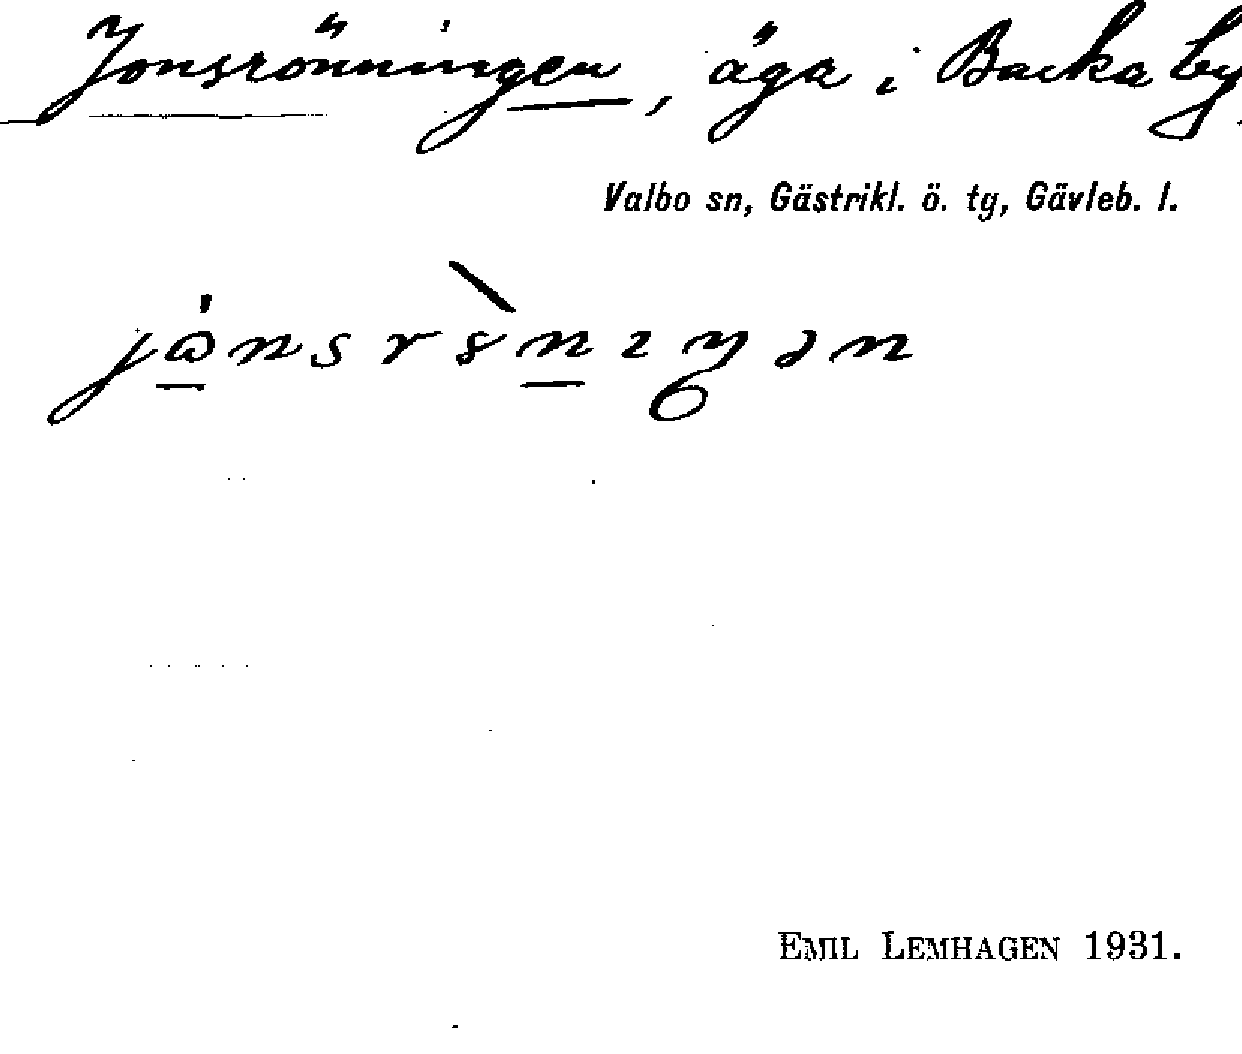 Jonsrönningen, äga i Backa by
Valbo sn, Gästrikl. ö. tg, Gävleb. l.
EMIL LEMHAGEN 1931.